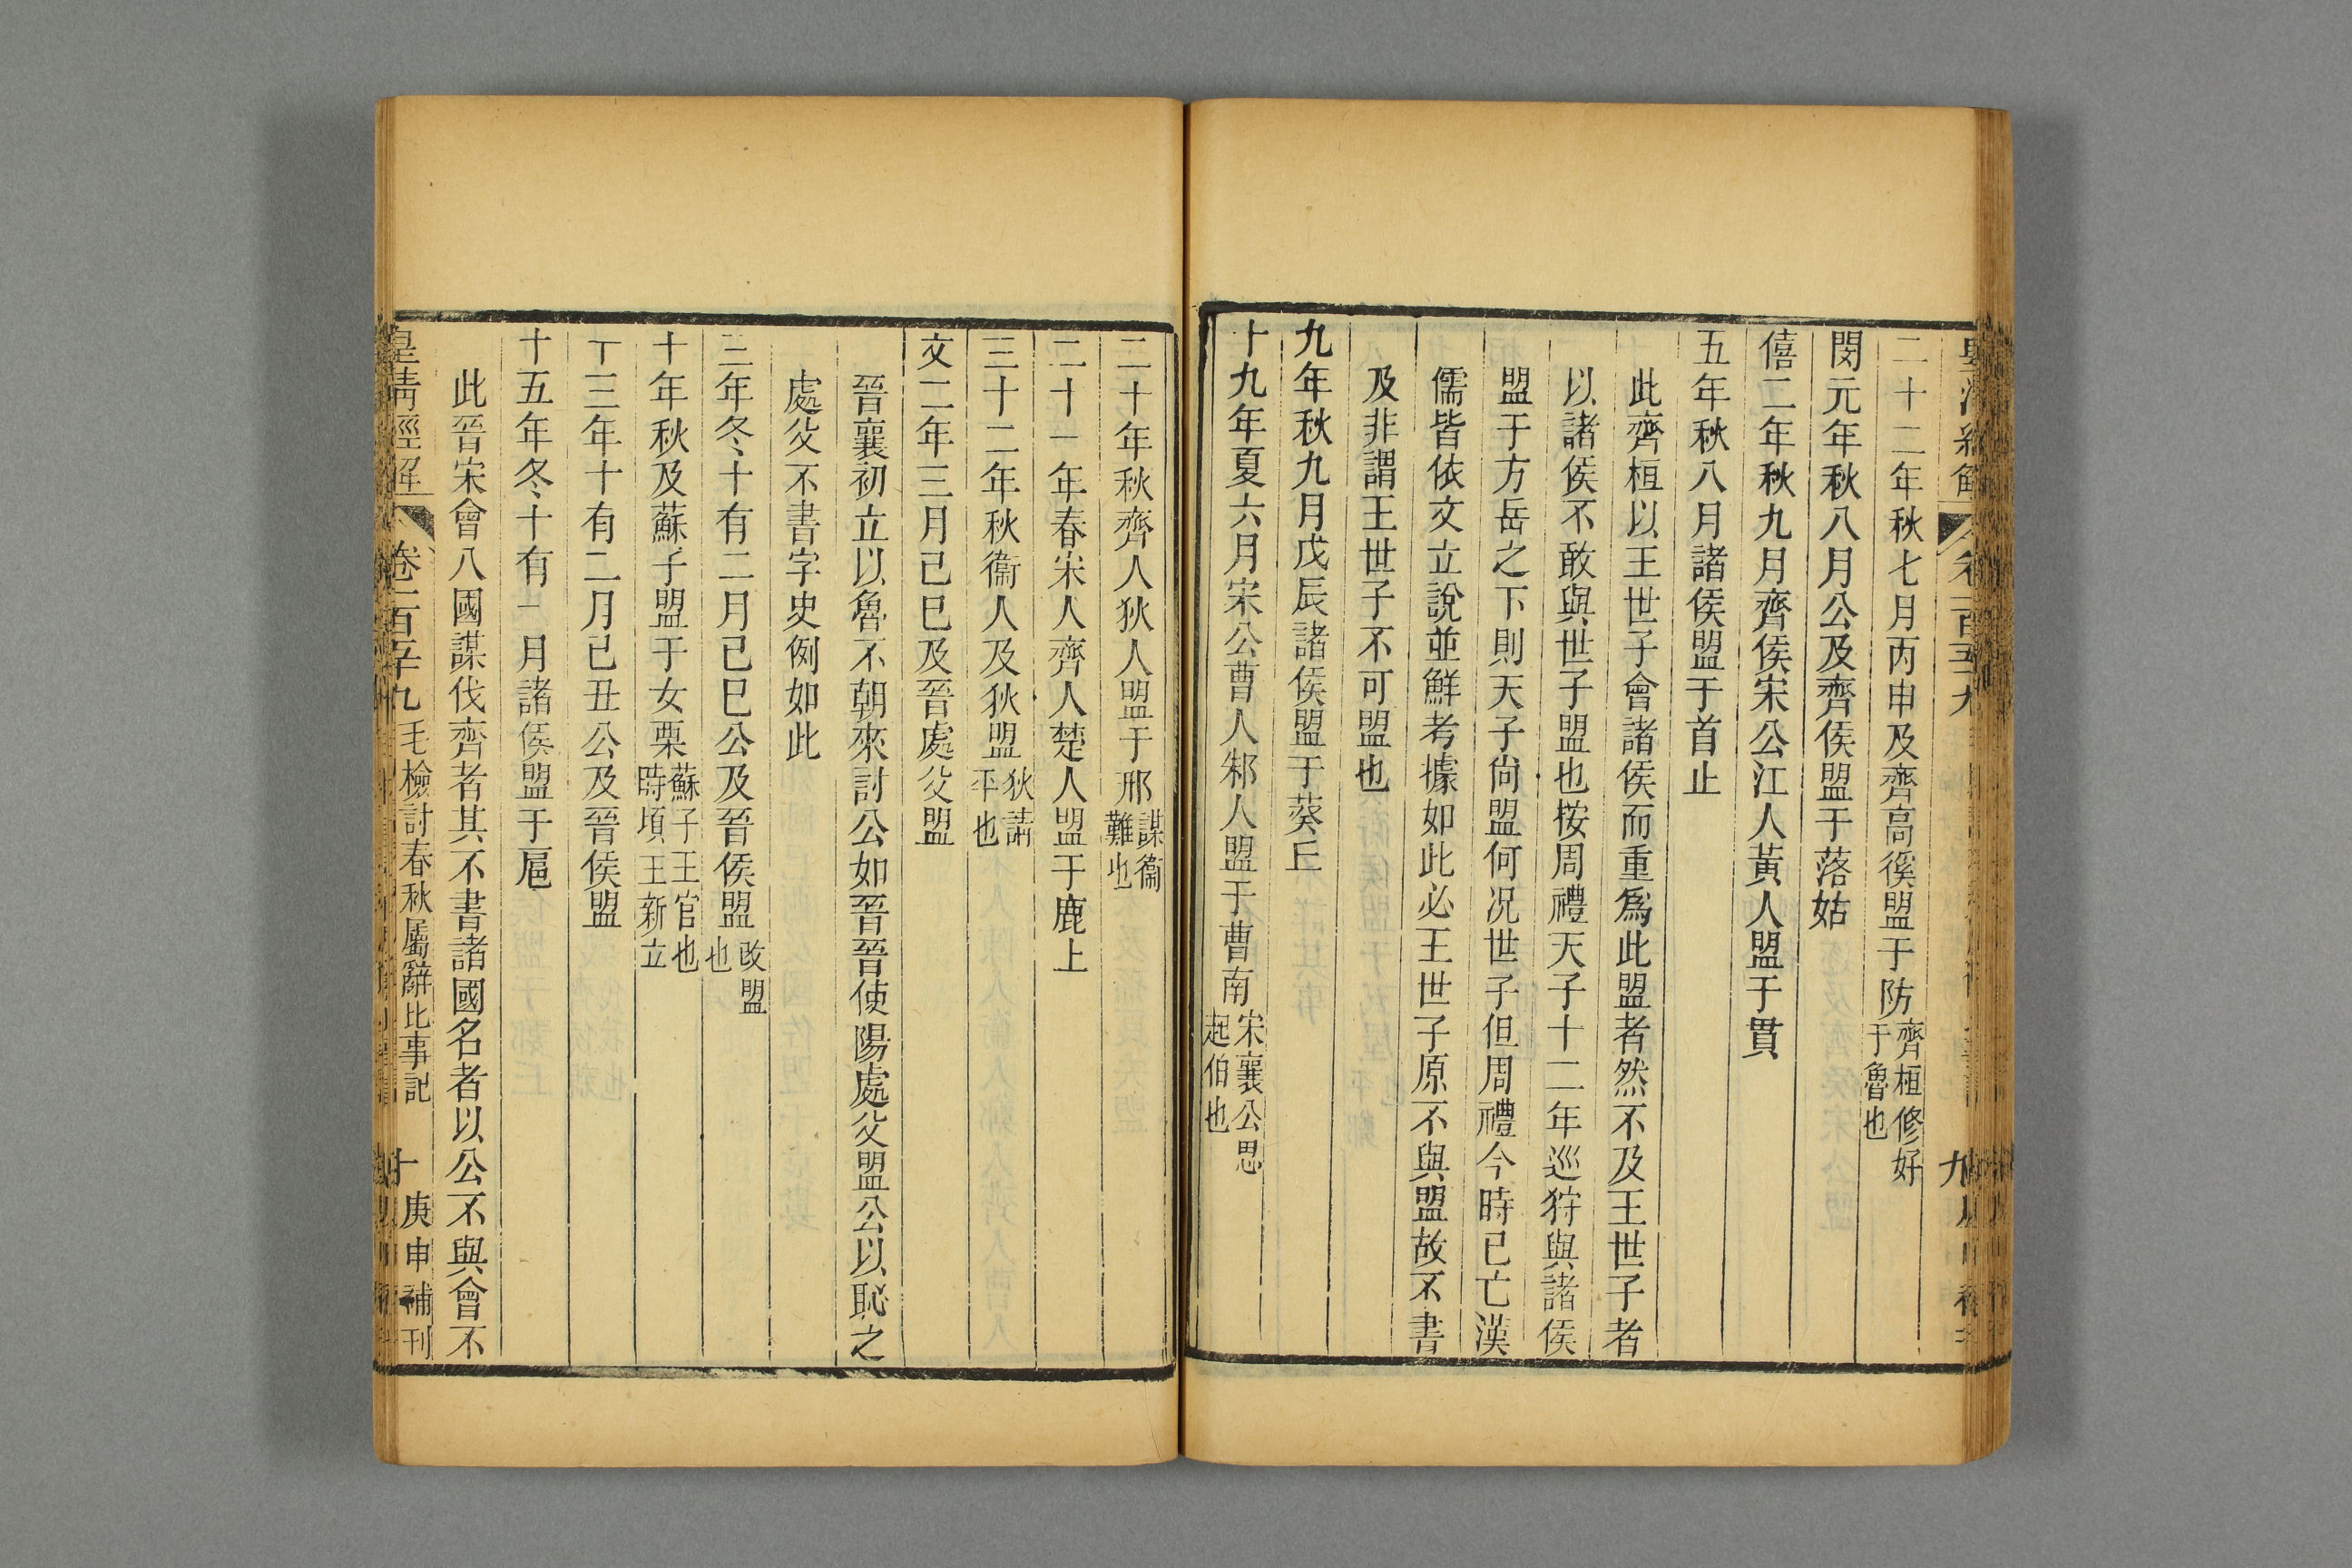 二十二年秋七月丙申及齊高徯盟于防齊桓修好于魯也
閔元年秋八月公及齊侯盟于落姑
僖二年秋九月齊侯宋公江人黃人盟于貫
五年秋八月諸侯盟于首止
此齊桓以王世子會諸侯而重爲此盟者然不及王世子者
以諸侯不敢與世子盟也按周禮天子十二年巡狩與諸侯
盟于方岳之下則天子尙盟何况世子但周禮今時已亡漢
儒皆依文立說並鮮考據如此必王世子原不與盟故不書
及非謂王世子不可盟也
九年秋九月戊辰諸侯盟于葵丘
十九年夏六月宋公曹人邾人盟于曹南宋襄公思起伯也
二十年秋齊人狄人盟于邢謀衞難也
二十一年春宋人齊人楚人盟于鹿上
三十二年秋衞人及狄盟狄請平也
文二年三月己巳及晉處父盟
晉襄初立以魯不朝來討公如晉晉使陽處父盟公以恥之
處父不書字史例如此
三年冬十有二月己巳公及晉侯盟改盟也
十年秋及蘇子盟于女栗蘇子王官也時頃王新立
十三年十有二月己丑公及晉侯盟
十五年冬十有一月諸侯盟于扈
此晉宋會八國謀伐齊者其不書諸國名者以公不與會不
皇清經解 卷一百五十九 毛檢討春秋屬辭比事記 十 庚申補刊